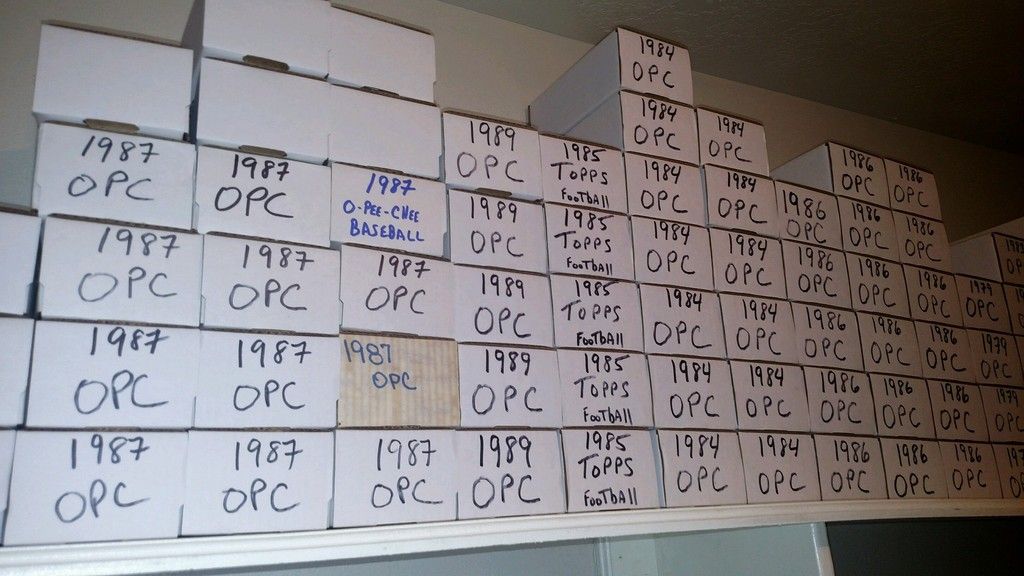 1987
OPC
1987
OPC
1987
OPC
1987
OPC
1987
OPC
1987
OPC
1987
OPC
1987
OPC
1987
O-PEE-CHEE
BASEBALL
1987
OPC
1987
OPC
1987
OPC
1989
OPC
1989
OPC
1989
OPC
1989
OPC
1989
OPC
1985
TOPPS
FOOTBALL
1985
TOPPS
FOOTBALL
1985
TOPPS
FOOTBALL
1985
TOPPS
FOOTBALL
1985
TOPPS
FOOTBALL
1984
OPC
1984
OPC
1984
OPC
1984
OPC
1984
OPC
1984
OPC
1984
OPC
1984
OPC
1984
OPC
1984
OPC
1984
OPC
1984
OPC
1984
OPC
1986
OPC
1986
OPC
1986
OPC
1986
OPC
1986
OPC
1986
OPC
1986
OPC
1986
OPC
1986
OPC
1986
OPC
1986
OPC
1986
OPC
1986
OPC
1986
OPC
1986
OPC
1986
OPC
1986
OPC
1979
OPC
1979
OPC
1979
OPC